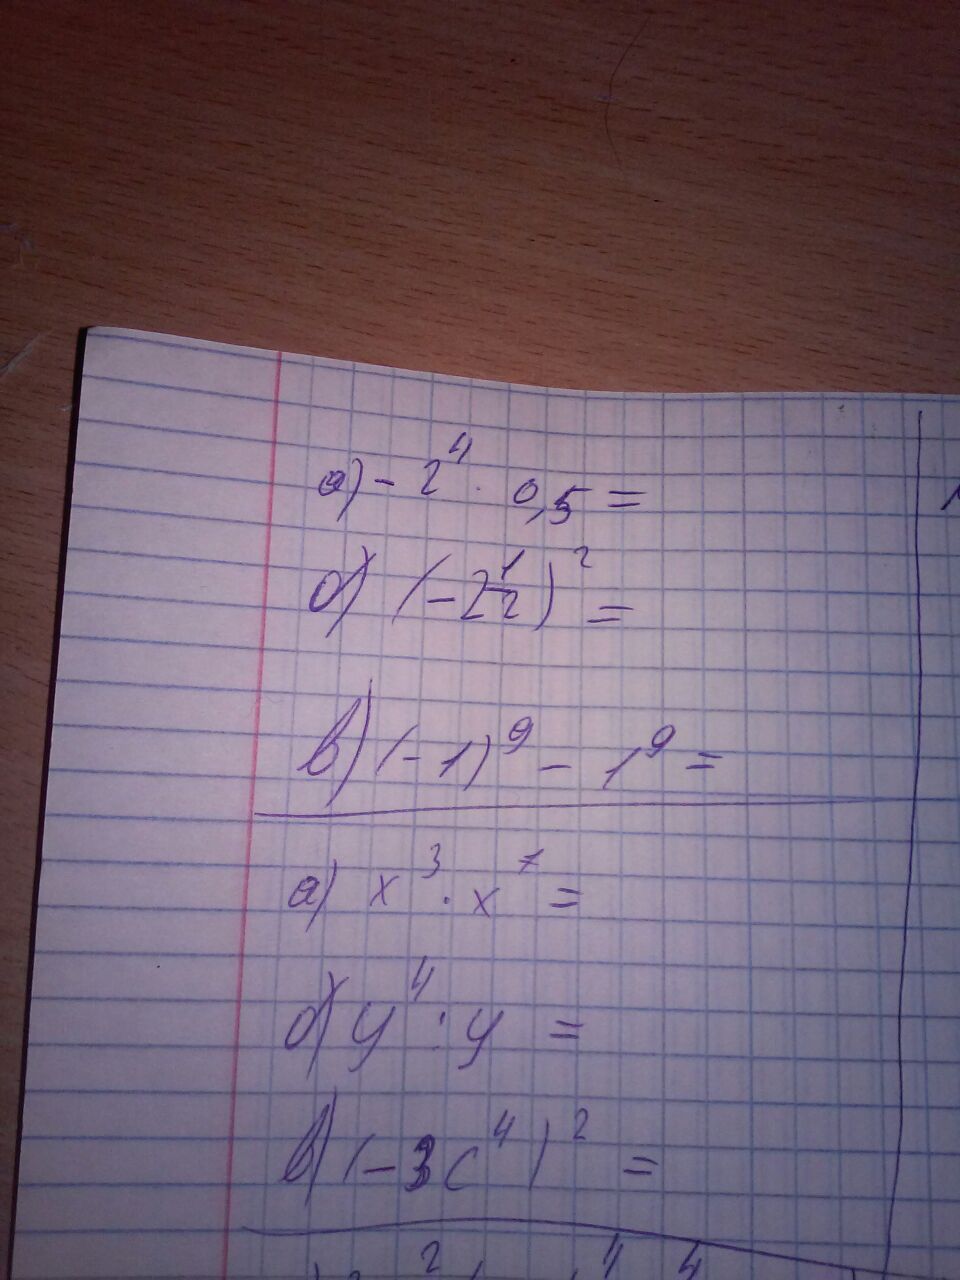 а) - 2⁴ · 0,5 =
б) (-2 1/2)² =
в) (-1)⁹ - 1⁹ =
а) x³ · x⁷ =
б) y⁴ : y =
в) (-3c⁴)² =